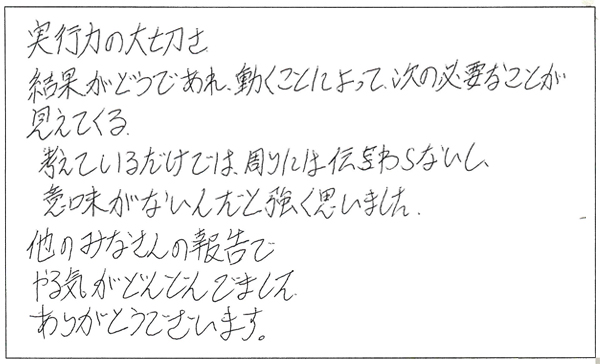 実行力の大切さ
結果がどうであれ、動くことによって、次の必要なことが
見えてくる。
考えているだけでは、周りには伝わらないし、
意味がないんだと強く思いました。
他のみなさんの報告で
やる気がどんどんでました。
ありがとうございます。